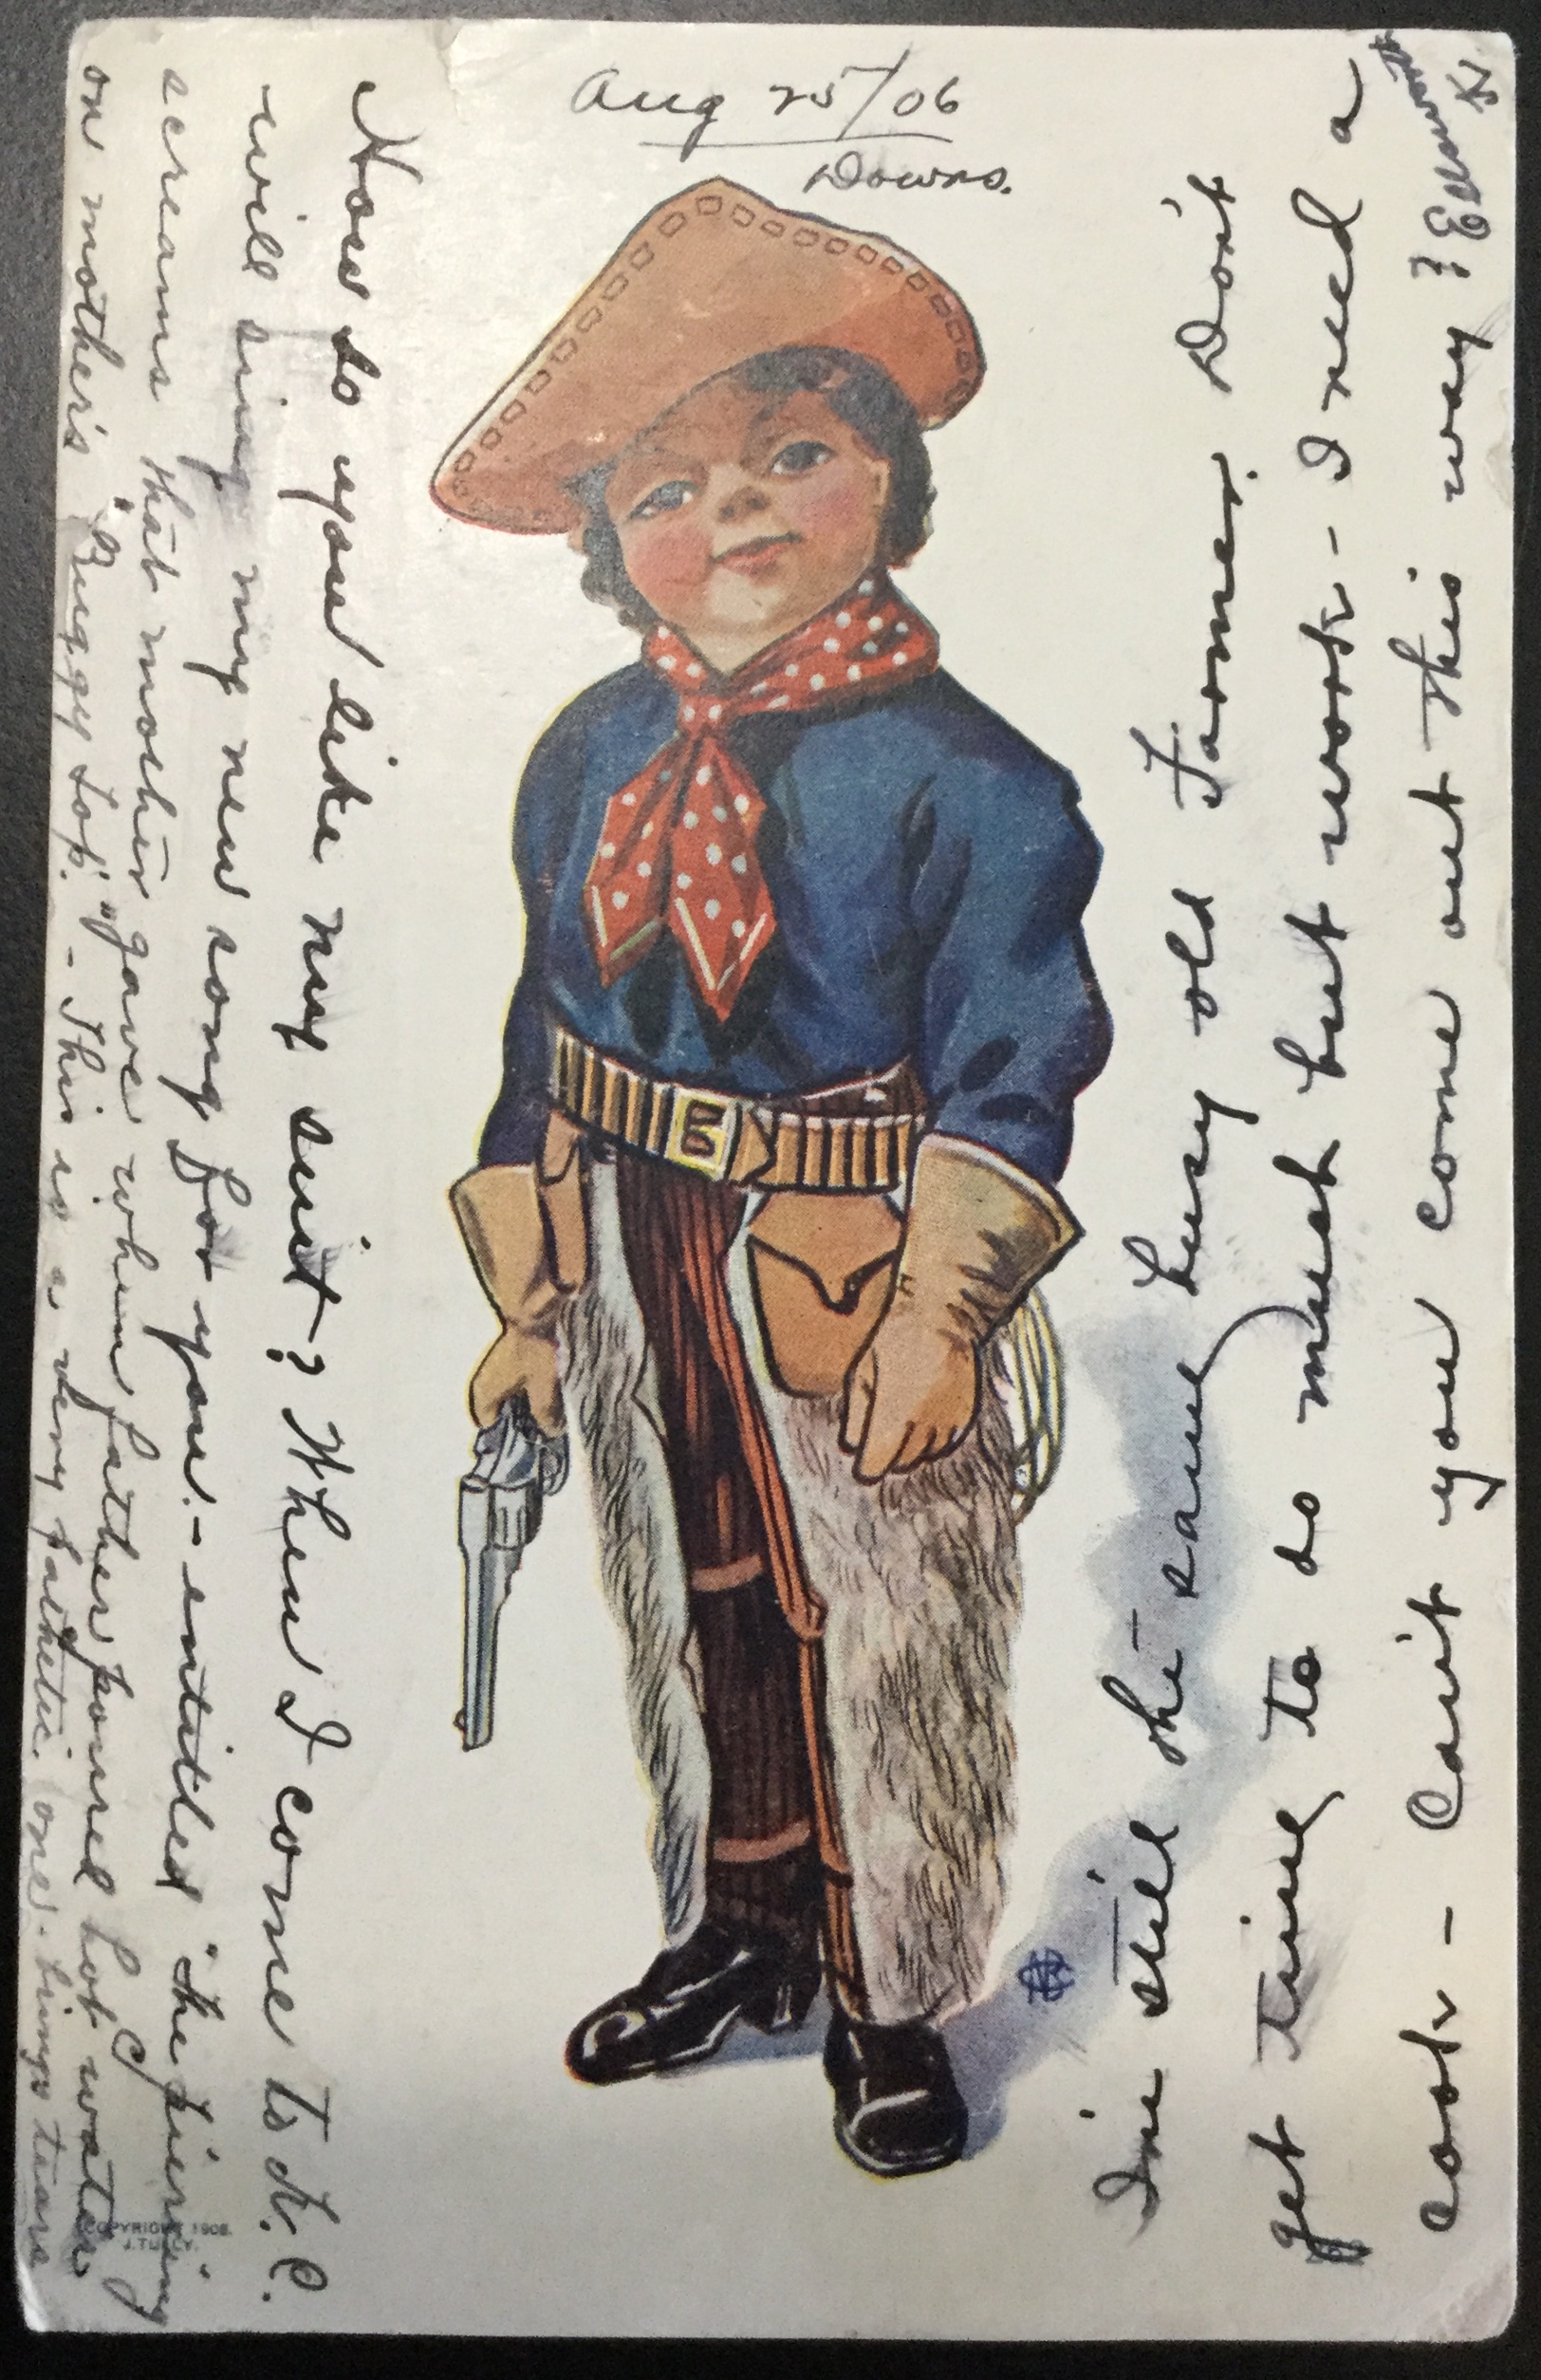 Aug 25/06
Downs.
How do you like my suit? When I come to K.C.
will sing my new song for you. - entitled "The piercing
screams that mother gave when father poured hot water
on mother's "Buggy top." - This is a very pathetic one - brings tears
I'm still the same busy old Farmer. Don't
get time to do much but work - I need a
cook - Can't you come out this way?
Ellsworth
K
COPYRIGHT 1906.
J. TULLY.